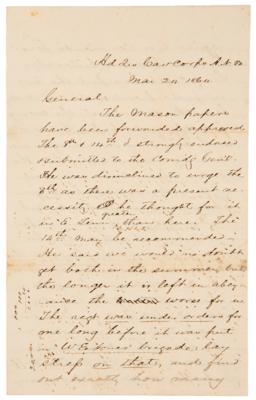 Hd Qrs Cav Corps A. N. Va
Mar 24 1864
General
The Mason papers
have been forwarded approved
The 8th & 14th I strongly endorsed
& submitted to the Comdg Genl.
He was disinclined to urge the
8th as there was a present ne-
cessity he thought for it
in E Tenn greater than here. The
14th may be recommended.
He says we would no doubt
get both in the summer but
the longer it is left in abey-
ance the worse for us
The regt was under orders for
me long before it was put
in W E Jones' brigade, lay
stress on that, and find
out exactly how many